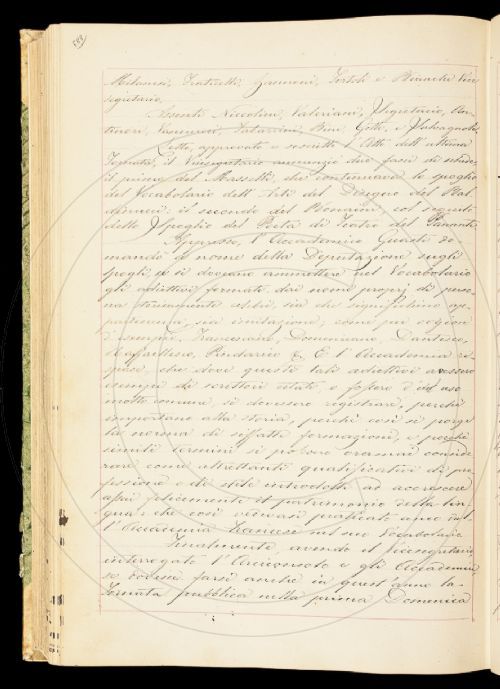 Milanesi, Fraticelli, Zannoni, Tortoli e Bianchi Vice
segretario.
Assenti Niccolini, Valeriani, Segretario,
Letto, approvato e sancito l'Atto dell'ultima
Tornata, il Vicesegretario annunziò due fasci di schede:
il primo del Masselli, che conteneva lo spoglio
del Vocabolario dell'Arti del Disegno del Bal
dinucci: il secondo del
dello Spoglio del Poeta di Teatro del Pananti.
Appresso, l'Accademico Guasti do
mandò a nome della Deputazione sugli
spogli, se si doveano ammettere nel Vocabolario
gli adiettivi formati dai nomi proprj di perso
na sia che significhino ap
partenenza, sia imitazione; come per cagion
d'esempio, Francescano, Domenicano, Dantesco,
Raffaellesco, Pindarico &. E l'Accademia ri
spose, che dove questi tali adiettivi avessero
esempio di scrittori citati e fossero d'un uso
molto comune, si dovessero registrare, perchè
importano alla storia, perchè così si porge
la norma di siffatta formazione, e perchè
simili termini si possono oramai conside
rare come altrettanti qualificativi di pro
fessione o di stile introdotti ad accrescere
assai felicemente il patrimonio della lin
gua: che così vedeasi praticato anco dal
l'Accademia Francese nel suo Vocabolario.
Finalmente, avendo il Vicesegretario
interrogato l'Arciconsolo e gli Accademici
se dovesse farsi anche in quest'anno la
Tornata pubblica nella prima Domenica